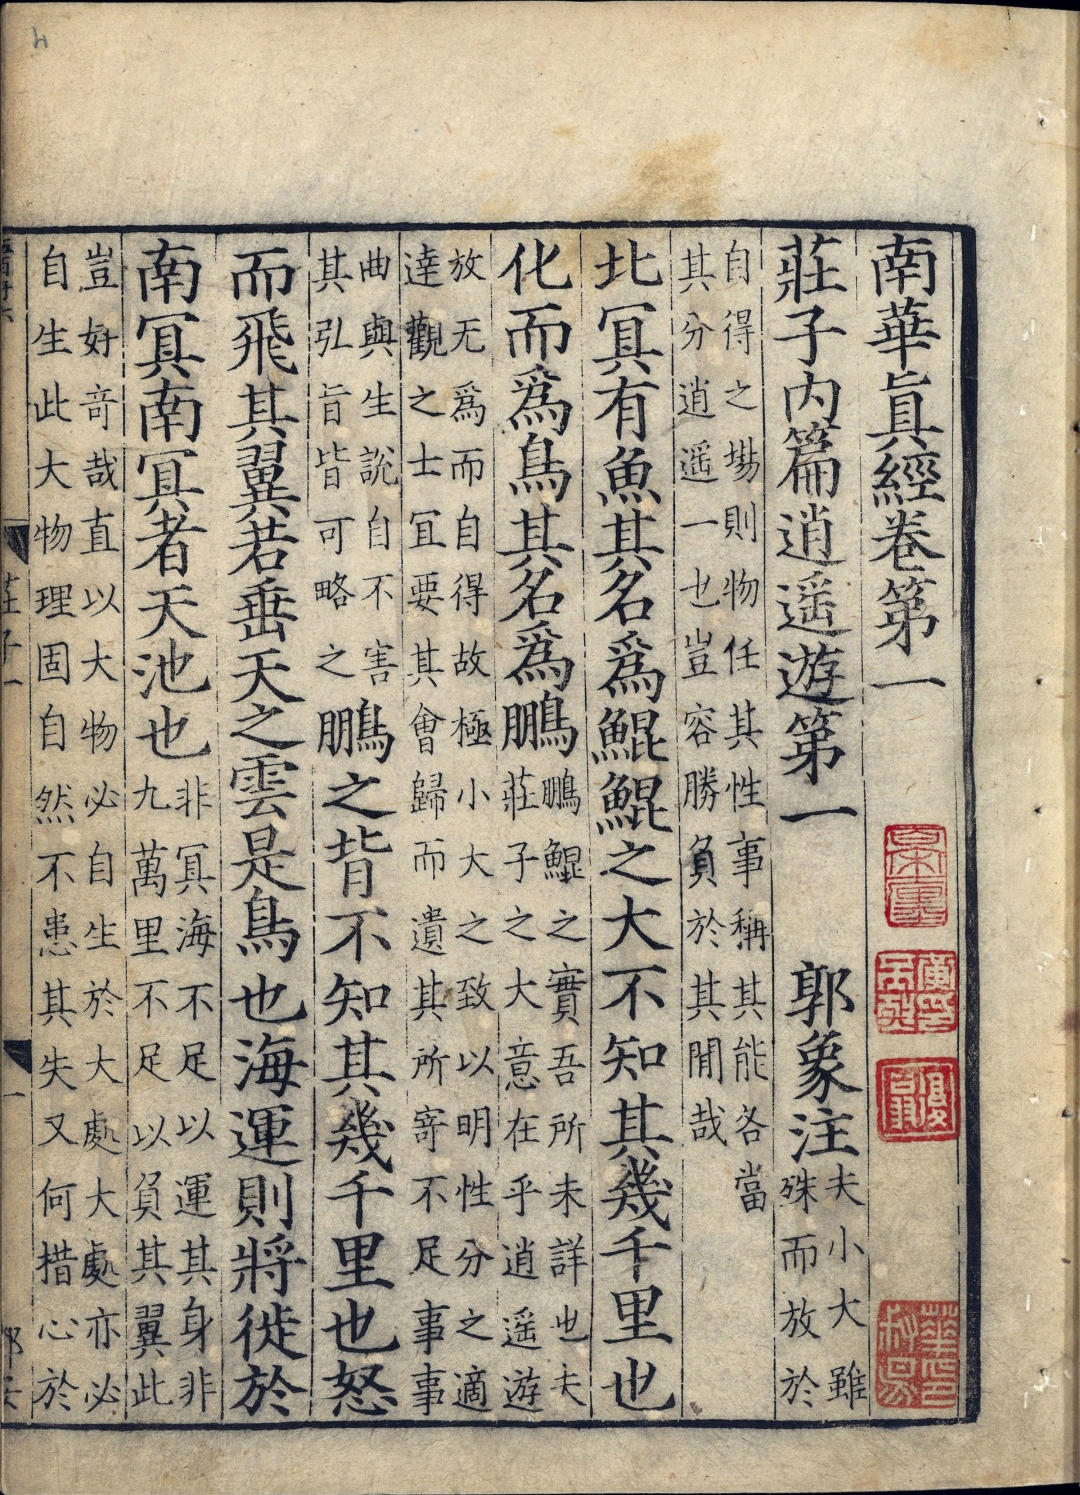 南華眞經卷第一
莊子内篇逍遥遊第一 郭象注
夫小大雖
殊而放於
自得之塲則物任其性事稱其能各當
其分逍遥一也豈容勝負於其閒哉
北冥有魚其名爲鯤鯤之大不知其幾千里也
化而爲鳥其名爲鵬
鵬鯤之實吾所未詳也夫
莊子之大意在乎逍遥遊
放无爲而自得故極小大之致以明性分之適
達觀之士冝要其會歸而遺其所寄不足事事
曲與生說自不害
其弘旨皆可略之
鵬之背不知其幾千里也怒
而飛其翼若垂天之雲是鳥也海運則將徙於
南冥南冥者天池也
非冥海不足以運其身非
九萬里不足以負其翼此
豈好奇哉直以大物必自生於大處大處亦必
自生此大物理固自然不患其失又何措心於
莊子一
一